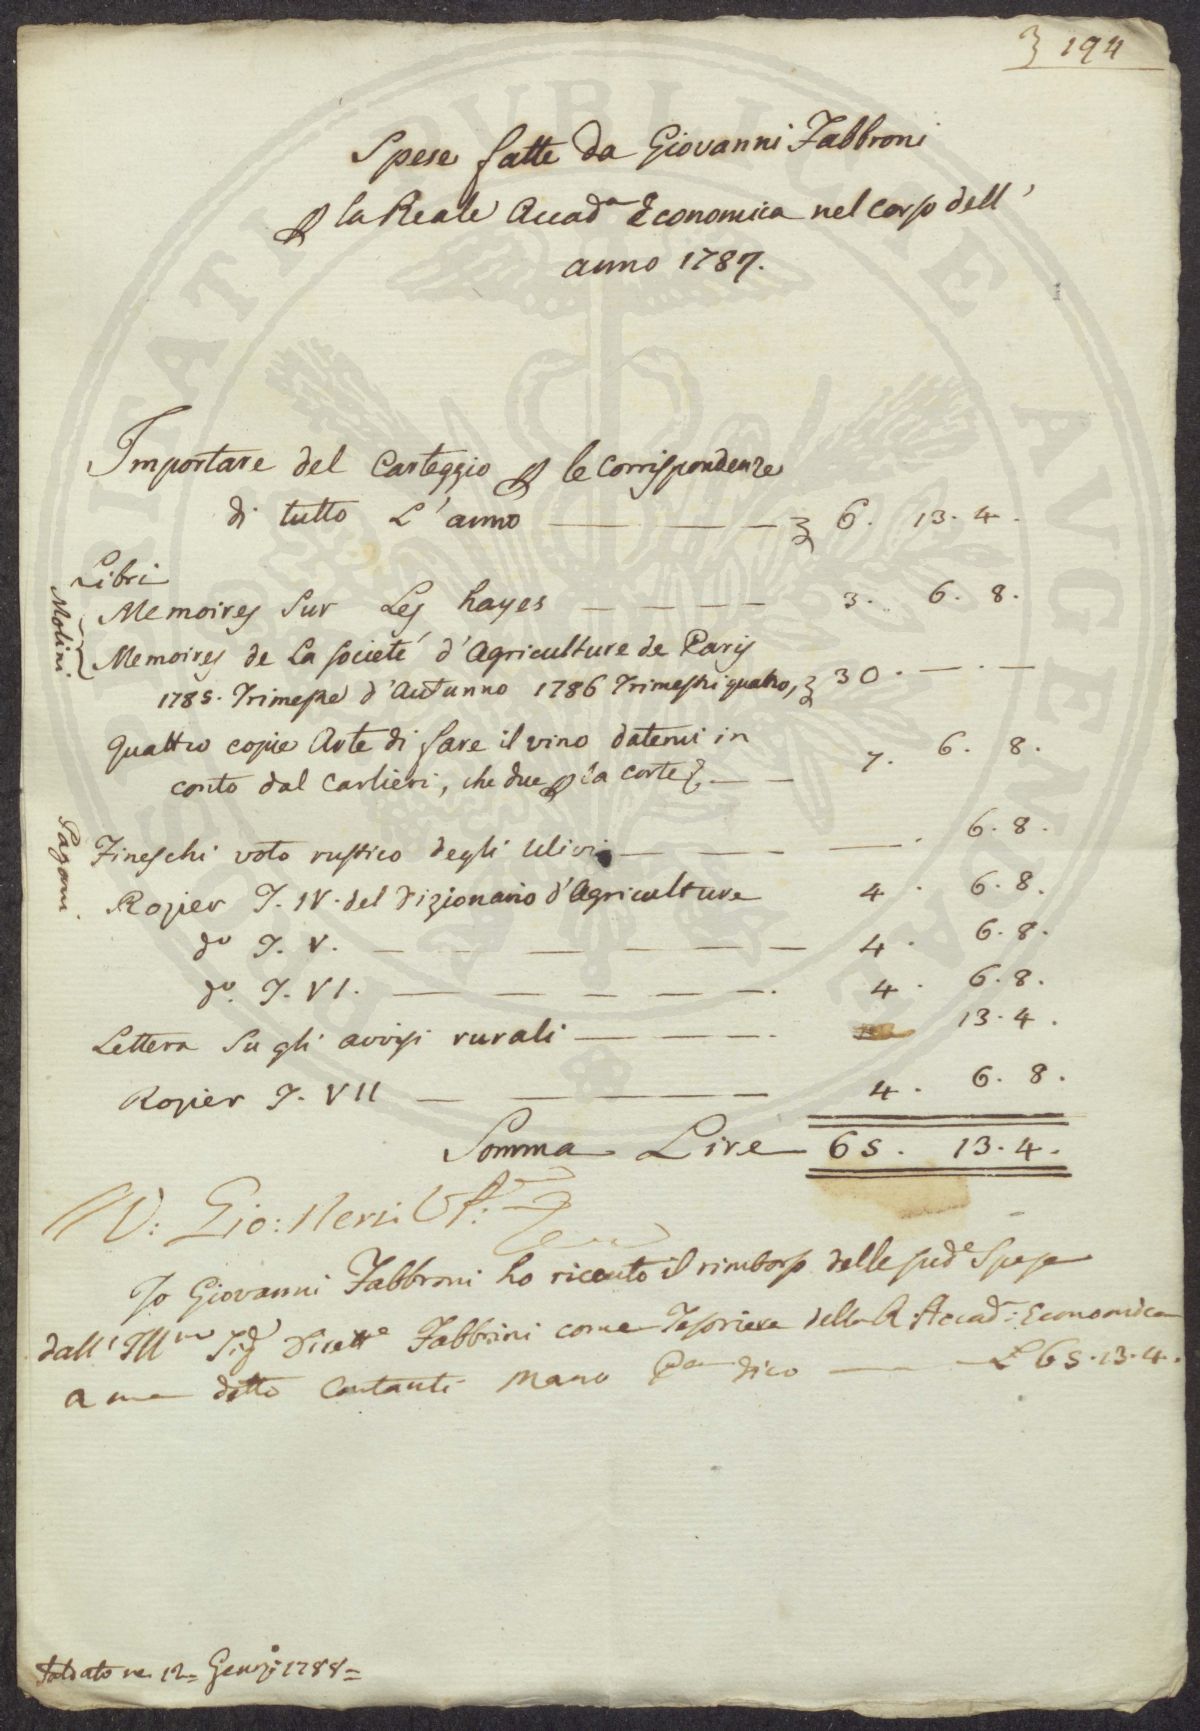 194
Spese fatte da Giovanni Fabbroni
p la Reale Accad.a Economica nel corso dell'
anno 1787.
Importare del Carteggio p le Corrispondenze
di tutto L'anno — — — 6. 13. 4.
Libri
Molini
Memoires sur Les hayes — — — — 3. 6. 8.
Memoires de La Societé d'Agriculture de Paris
1785. Trimestre d'Autunno 1786 Trimestri quatro, 30. — . —
quattro copie Arte di fare il vino datemi in
conto dal Carlieri, che due p la Corte — — 7. 6. 8.
Pagani.
Fineschi voto rustico degli Ulivi — — — — . 6. 8.
Rozier T. IV. del Dizionario d'Agriculture 4. 6. 8.
do T. V. — — — — — — 4. 6. 8.
do. T. VI. — — — — — . 4. 6. 8.
Lettera su gli avvisi rurali — — — . 13. 4.
Rozier T. VII — — — 4. 6. 8.
Somma Lire 65. 13. 4.
V: Gio: Neri
Io Giovanni Fabbroni ho riceuto il rimborso delle sud.e Spese
dall' Ill.mo Sig. Dirett.e Fabbrini come Tesoriere della R. Accad.: Economica
a me detto Contanti mano P.a dico — — £ 65. 13. 4.
Saldato ne 12= Genn: 1788=
PUBLICAE
AUGENDAE